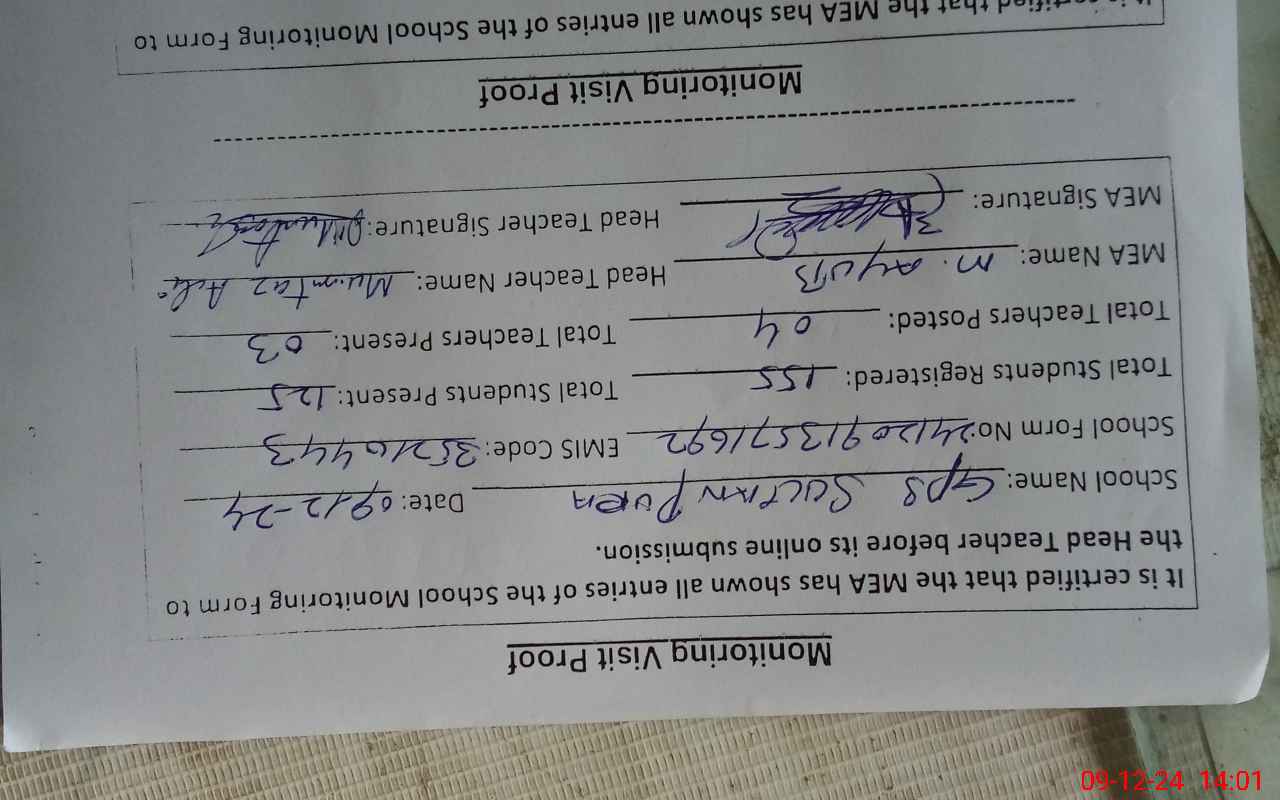 Monitoring Visit Proof
It is certified that the MEA has shown all entries of the School Monitoring Form to
the Head Teacher before its online submission.
School Name: GPS SULTAN PURA Date: 09-12-24
School Form No: 24120913571692 EMIS Code: 35210443
Total Students Registered: 155 Total Students Present: 125
Total Teachers Posted: 04 Total Teachers Present: 03
MEA Name: M. AYUB Head Teacher Name: Mumtaz Ali
MEA Signature: Head Teacher Signature:
Monitoring Visit Proof
It is certified that the MEA has shown all entries of the School Monitoring Form to
09-12-24 14:01